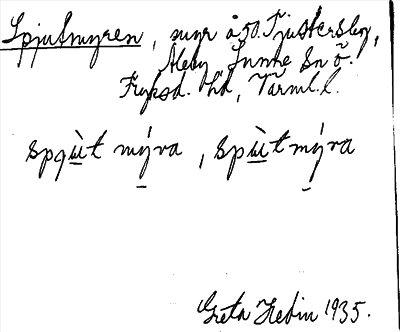 Spjutmyren, myr å 50. Tjustersby,
Alely Sunne Sn ö.
Fryksd. hd, Värml. l.
spqùt mýra, spùt mýra
Greta Hedin 1935.